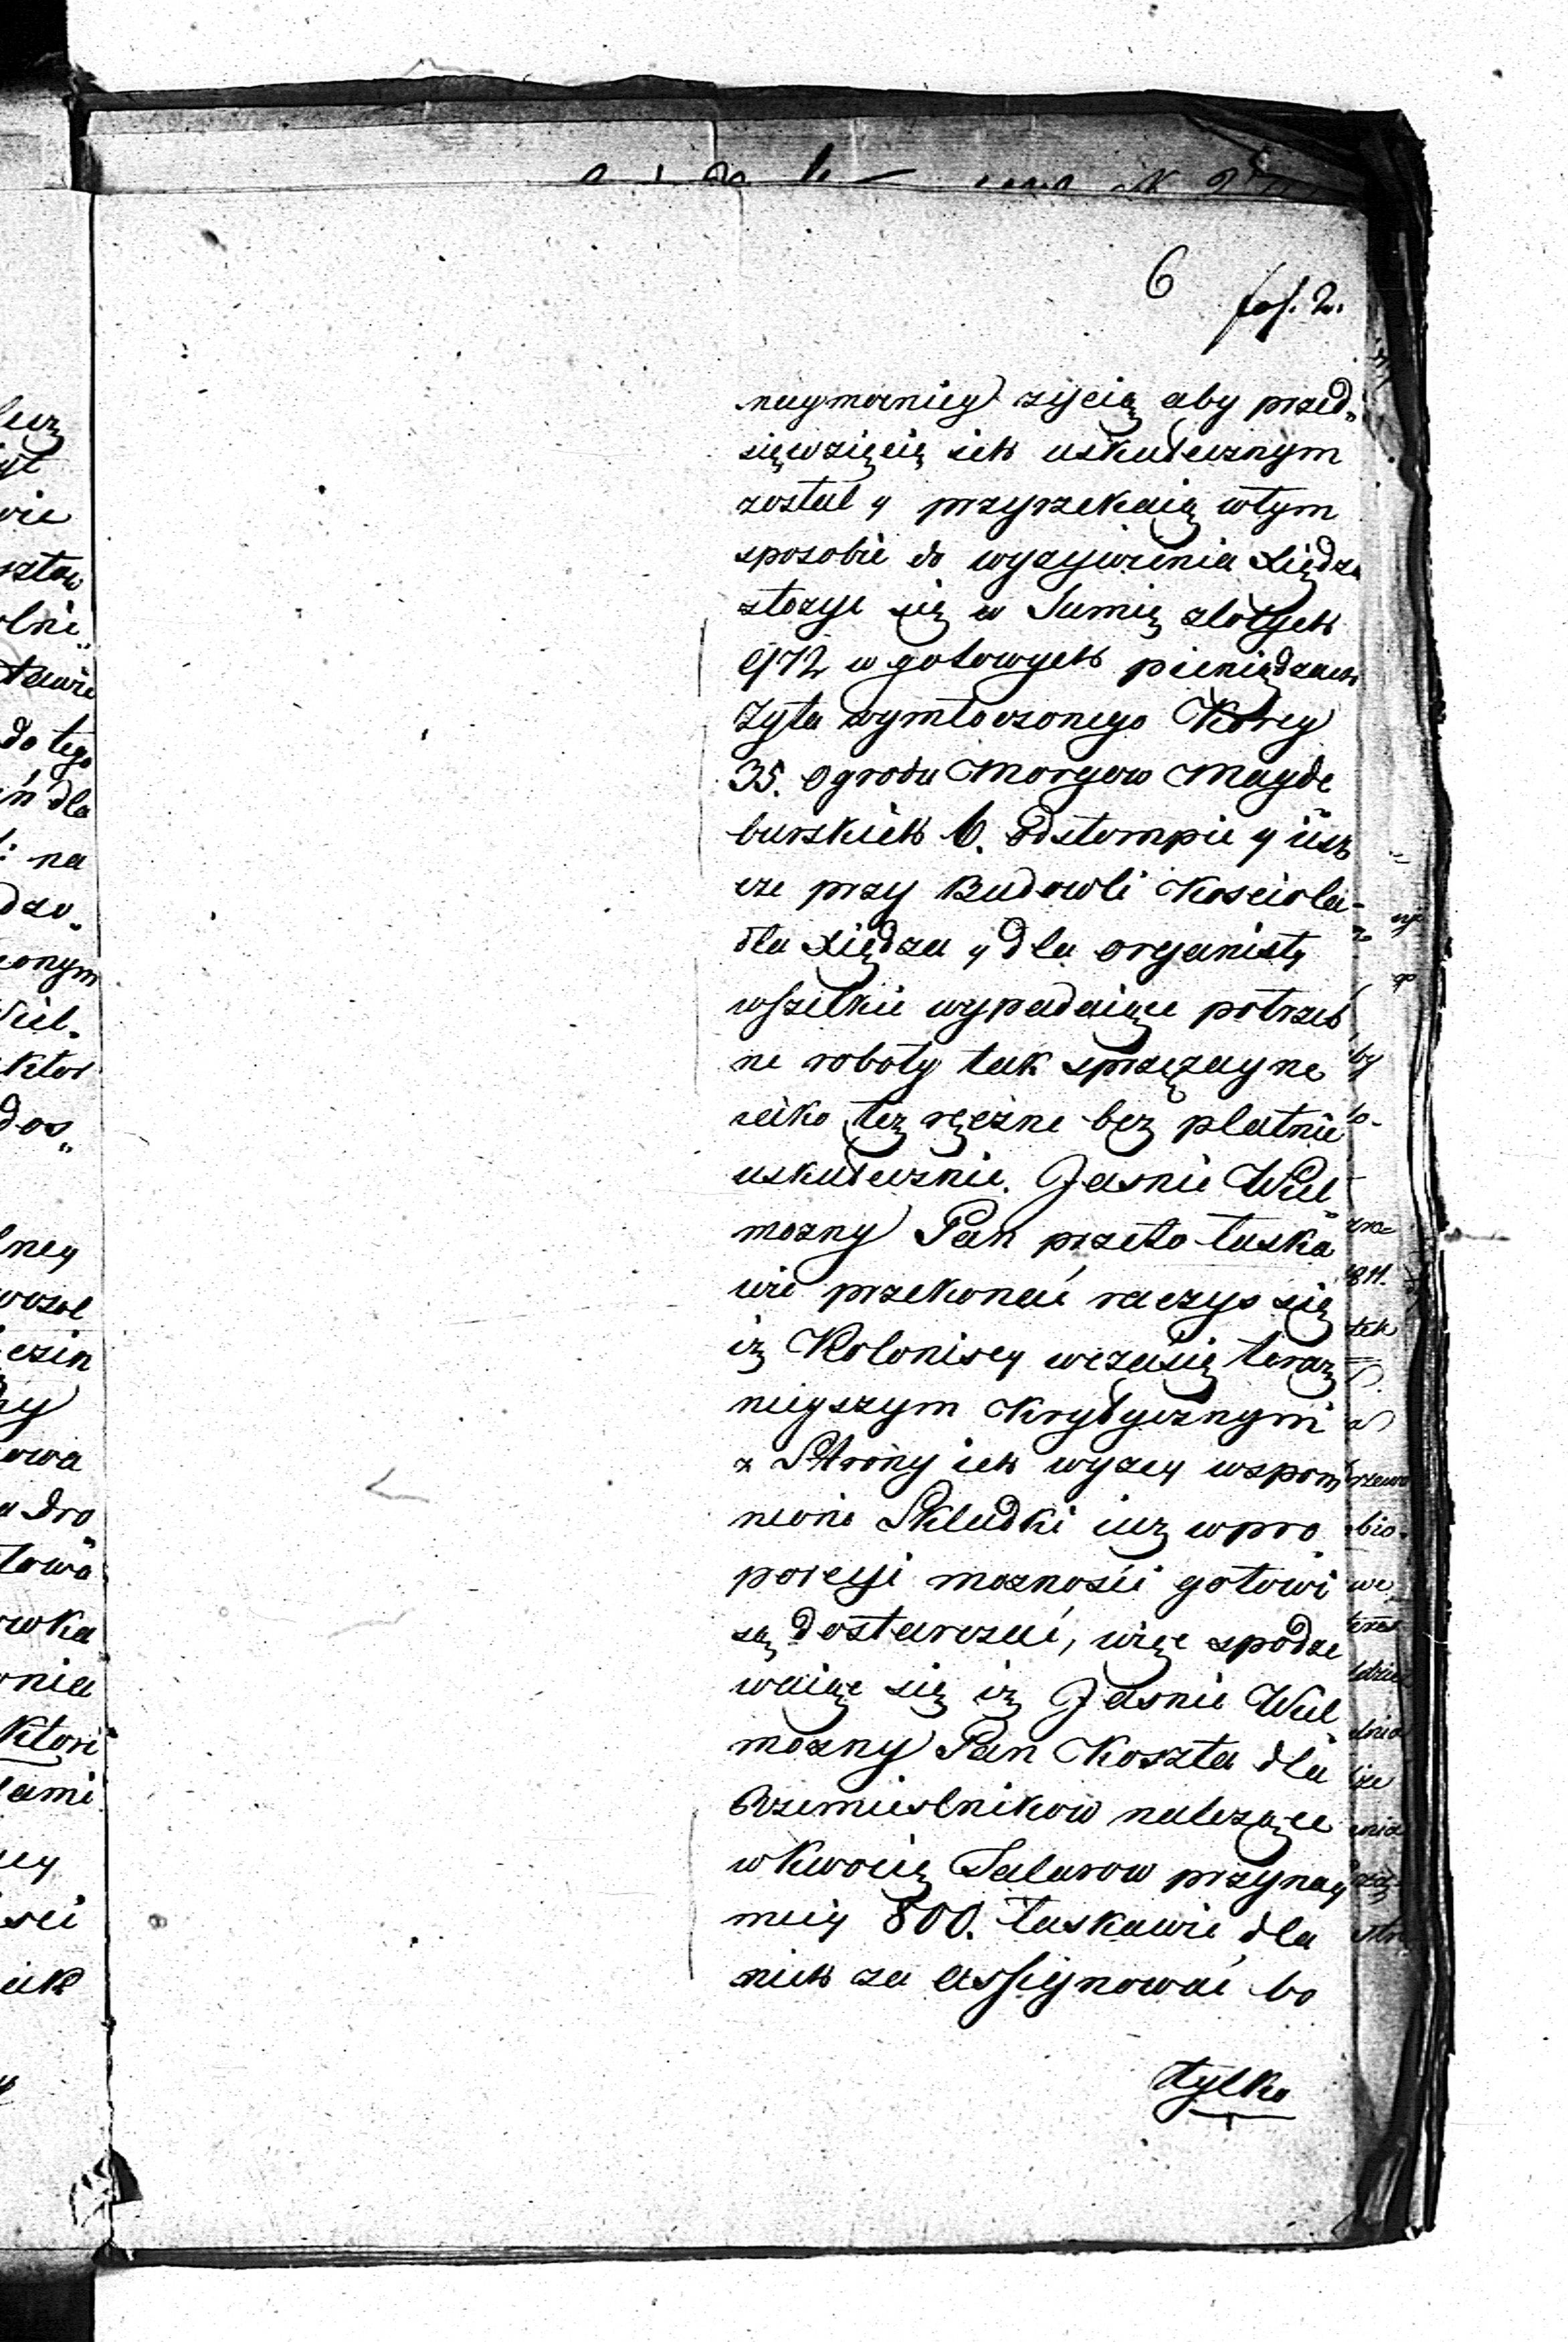 6 fol. 2.
naymocniey zyczą aby przed„
sięwzięcię ich uskutecznym
został y przyrzekaią wtym
sposobie do wyzywienia Xiędza
złozyc się w Sumię złotych
972 w gotowych pieniędzach
Zyta wymłoczonego Korcy
35. Ogrodu Morgow Magde„
burskich 6. odstompic y iesz
cze przy Budowli Kosciola
dla Xiędza y dla organisty
wszelkie wypadaiące potrzeb
ne roboty tak sprzęzayne
iako tez ręczne bez płatnie
uskutecznic. Jasnie Wiel„
mozny Pan przeto łaska
wie przekonać raczys się
iz Kolonisci wczasię teraz
nieyszym Krytycznymi
z Strony ich wyzey wspom
nione Składki iuz wpro„
porcyi moznosci gotowi
są dostarczać, więc spodze
waiąc się iz Jasnie Wiel„
mozny Pan Koszta dla
Rzemieslnikow nalezące
wkwocię Talarow przynay
mniy 800. łaskawie dla
nich za assygnować bo
tylko
lecz
wie
olni„
do tego
dla
na
czonym
Wiel„
ktor
dos„
lney
czin
ny
owa
a dro„
towa
owka
onia
ktori
tami
sci